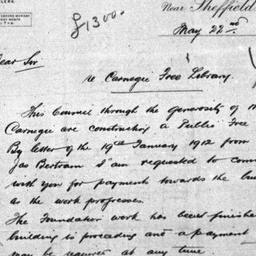 £1300.
Near Sheffield
May 22nd
Dear Sir
re Carnegie Free Library
This Council through the generosity of
Carnegie are constructing a Public Free
By letter of the 19th January 1912 from
Jas Bertram I am requested to
with you for payments towards the
as the work progresses.
The Foundation work has been finished
building is proceeding and a payment
may be required at any time